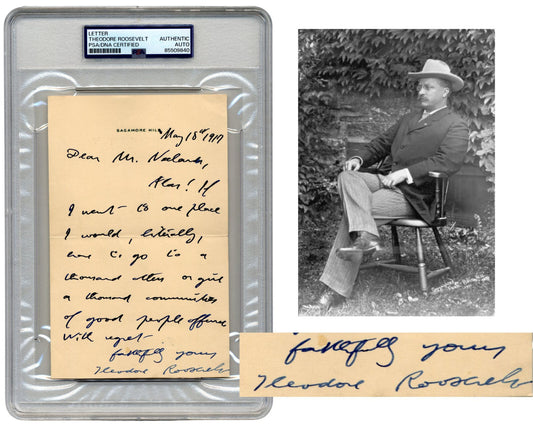 LETTER AUTHENTIC
THEODORE ROOSEVELT PSA AUTO
PSA/DNA CERTIFIED 85509840
SAGAMORE HILL
May 18th 1917
Dear Mr.
Alas! If
I went to one place
I would, literally,
have to go to a
thousand others or give
a thousand communities
of good people offense
With regret
faithfully yours
Theodore Roosevelt
faithfully yours
Theodore Roosevelt